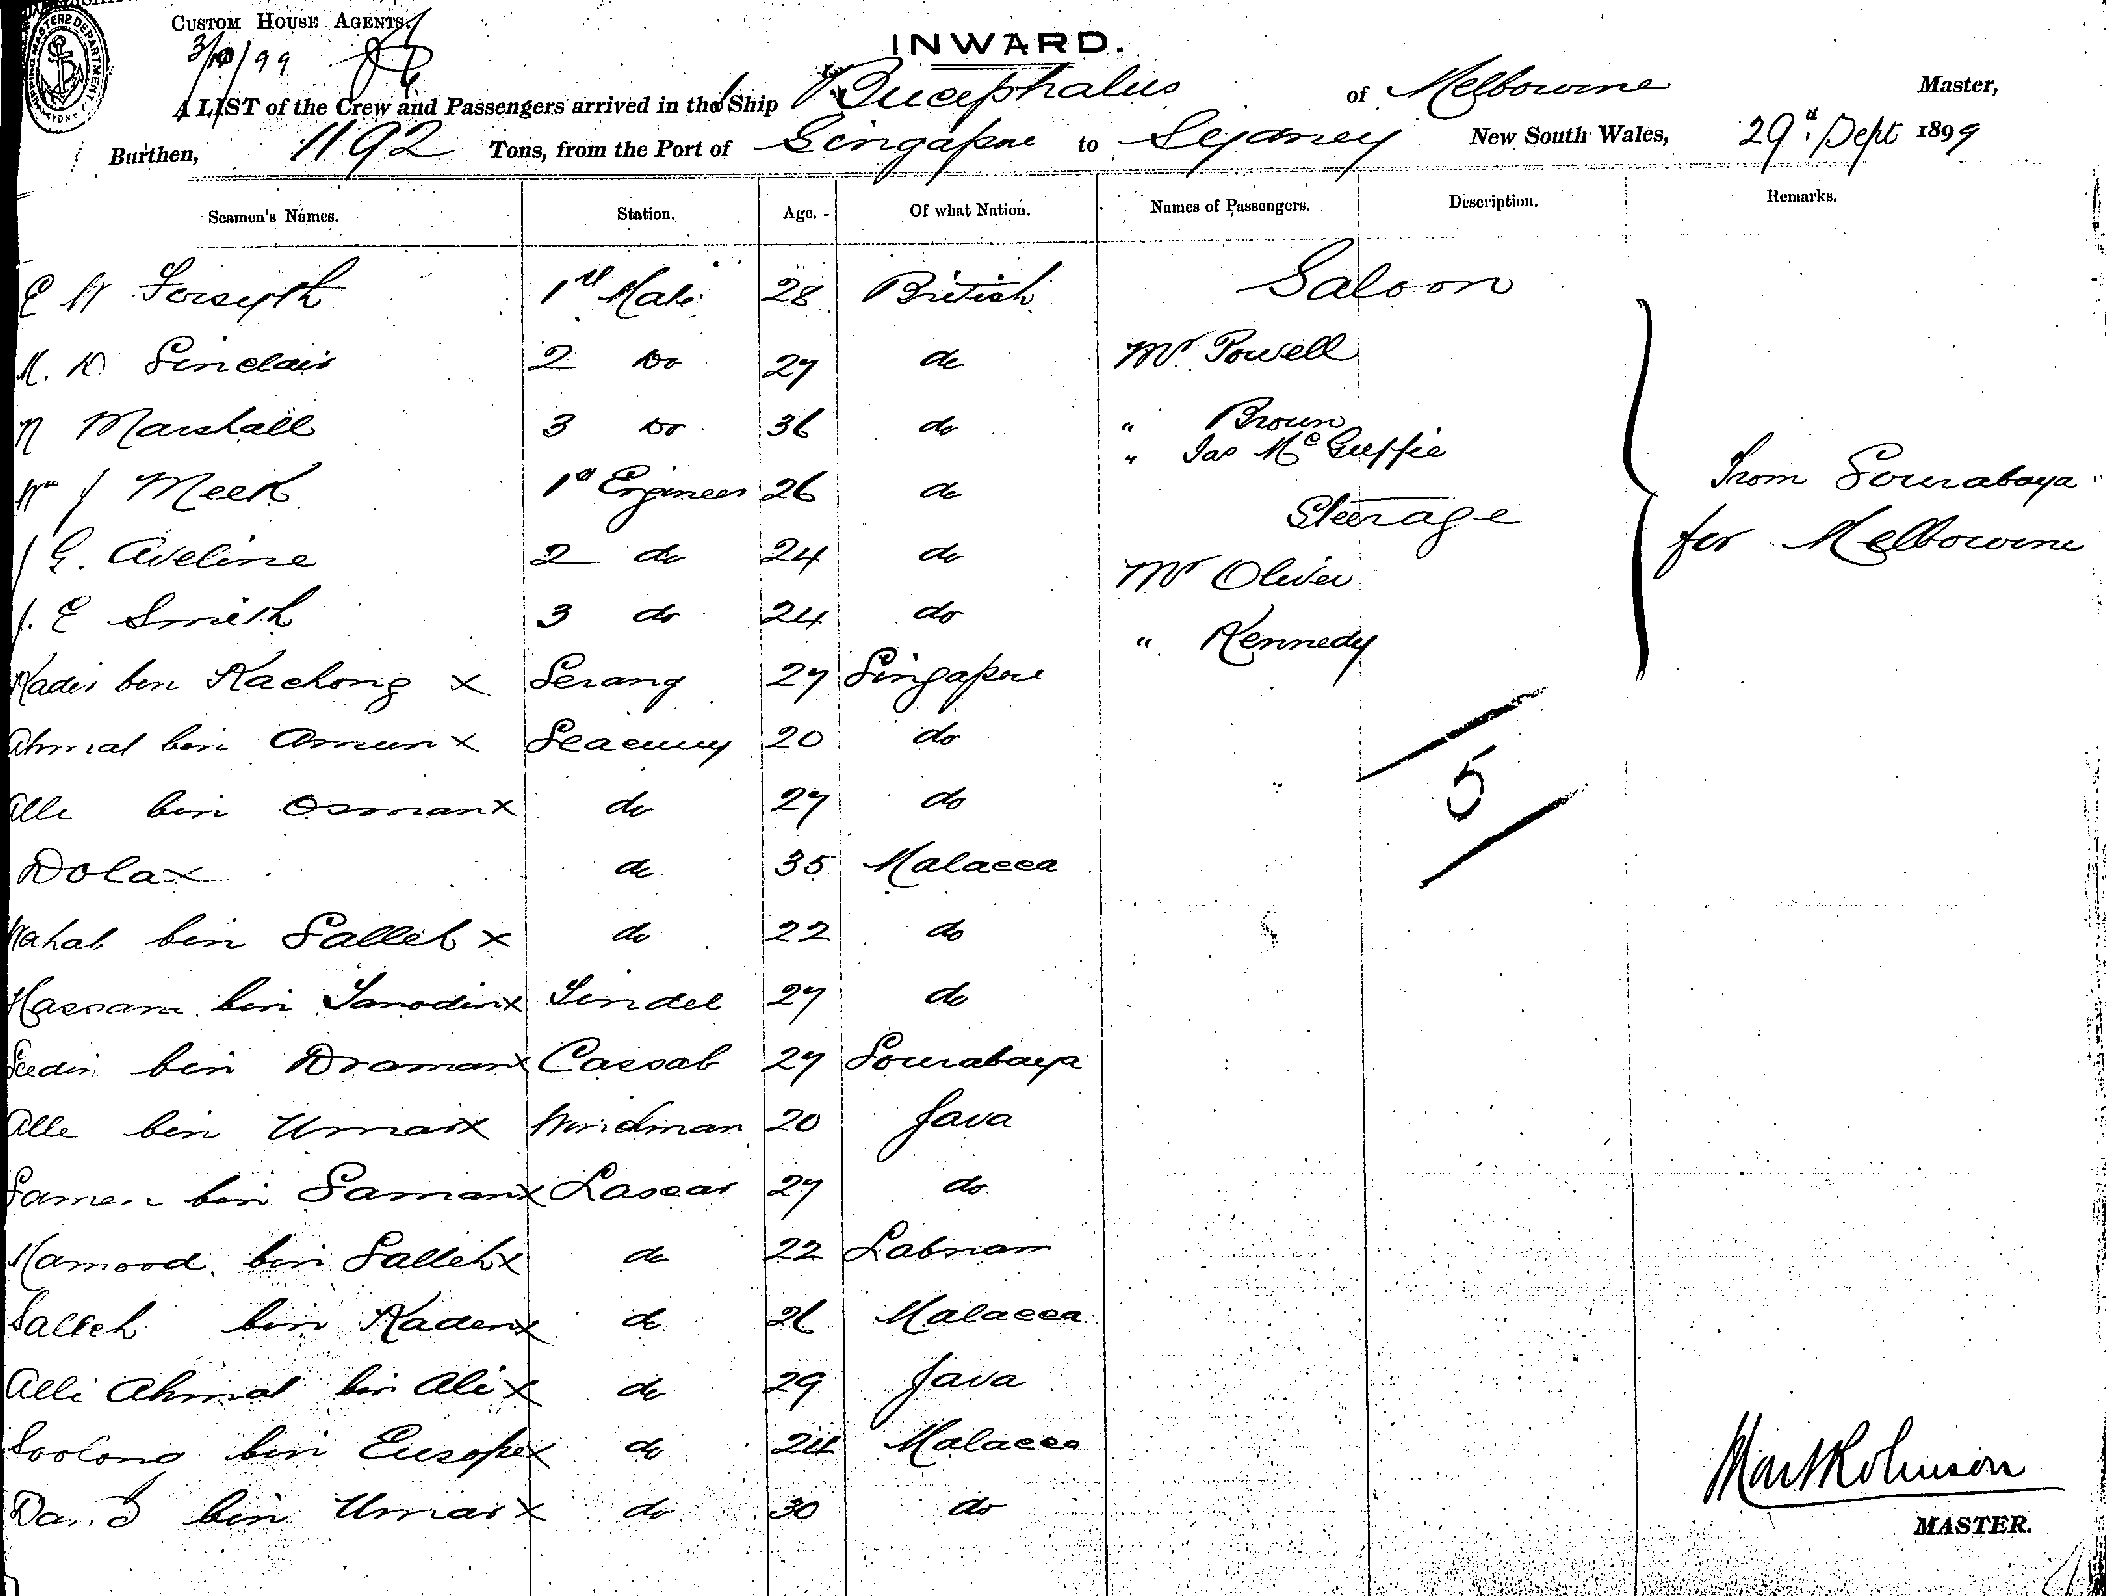 CUSTOM HOUSE AGENTS.
3/10/99
INWARD.
A LIST of the Crew and Passengers arrived in the Ship Bucephalus of Melbourne Master,
Burthen, 1192 Tons, from the Port of Singapore to Sydney New South Wales, 29th Sept 1899
Seamen's Names. Station. Age. Of what Nation. Names of Passengers. Description. Remarks.
E W Forsyth 1st Mate 28 British Saloon
M. D Sinclair 2 Do 27 do Mr Powell
N Marshall 3 Do 36 do " Brown
" Jas McGuffie
Wm J Meek 1st Engineer 26 do Steerage From Sourabaya
for Melbourne
J G. Aveline 2 do 24 do Mr Oliver
J. E Smith 3 do 24 do " Kennedy
Kader bin Kachong x Serang 27 Singapore
Ahmat bin Amun x Seacunny 20 do
Alle bin Osman x do 27 do 5
Dola x do 35 Malacca
Wahab bin Salleh x do 22 do
Hassam bin Tanodin x Tindel 27 do
bin Draman x Cassab 27 Sourabaya
Alle bin Umar x Windman 20 Java
Samen bin Saman x Lascar 27 do
Mamood bin Salleh x do 22 Labuan
Salleh bin Kader x do 26 Malacca
Alli Ahmat bin Ali x do 29 Java
Soolong bin Eusope x do 24 Malacca
bin Umar x do 30 do
Mark Robinson
MASTER.